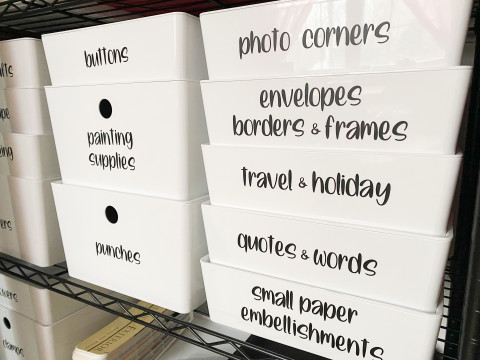 buttons
painting
supplies
punches
photo corners
envelopes
borders & frames
travel & holiday
quotes & words
small paper
embellishments